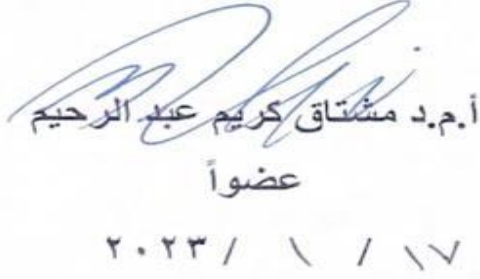 أ.م.د مشتاق كريم عبد الرحيم
عضواً
١٧ / ١ / ٢٠٢٣